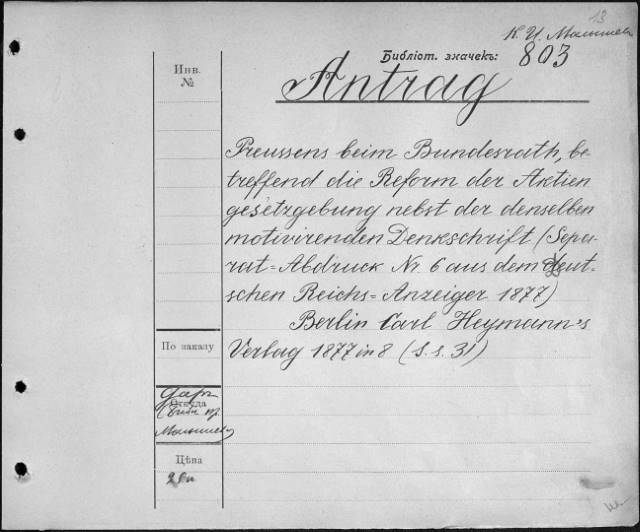 13
К. И. Малышев
Библіот. значекъ: 803
Инв.
№
Antrag
Preussens beim Bundesrath, be-
treffend die Reform der Aktien
gesetzgebung nebst der denselben
motivirenden Denkschrift (Sepa-
rat=Abdruck Nr 6 aus dem deut-
schen Reichs=Anzeiger 1877)
Berlin Carl Heymann's
Verlag 1877 in 8 (S. s. 31)
По заказу
Даръ
Откуда
Малышева
Цѣна